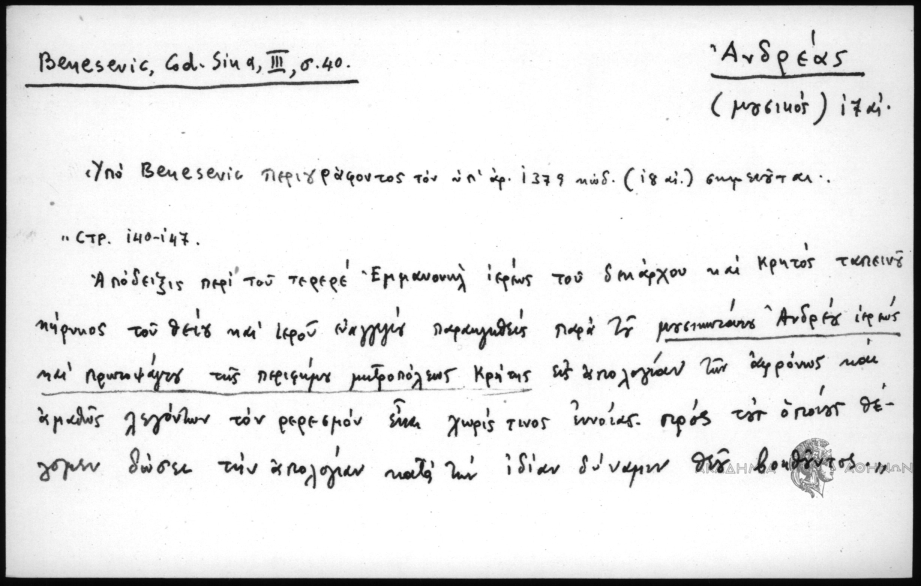 Benesevic, Cod. Sina, III, σ. 40.
Ἀνδρέας
(μουσικός) 17 αἰ.
Ὑπό Benesevic περιγράφοντος τόν ὑπ' ἀρ. 1379 κώδ. (18 αἰ.) σημειοῦται.
" Στρ. 140-147.
Ἀπόδειξις περί τοῦ τερερέ Ἐμμανουήλ ἱερέως τοῦ δεκάρχου καί Κρητός ταπεινοῦ
κήρυκος τοῦ θείου καί ἱεροῦ εὐαγγελίου παρακινηθείς παρά τοῦ μουσικωτάτου Ἀνδρέου ἱερέως
καί πρωτοψάλτου τῆς περιφήμου μητροπόλεως Κρήτης εἰς ἀπολογίαν τῶν ἀφρόνως καί
ἀμαθῶς λεγόντων τόν ρερεσμόν εἶναι χωρίς τινος ἐννοίας. πρός τούς ὁποίους θέ-
λομεν δώσει τήν ἀπολογίαν κατά τήν ἰδίαν δύναμιν θεοῦ βοηθοῦντος..."
ΑΚΑΔΗΜΙΑ ΑΘΗΝΩΝ